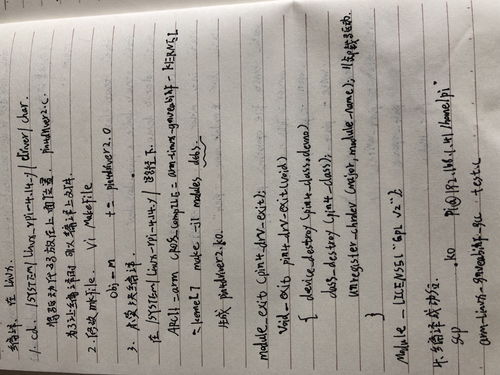 编译. 在 Linux.
1. cd. /SYSTEM/Linux-rpi-4.14.y/driver/char.
将驱动代码放在上面位置. pin4driver2.c.
为了让编译时 可以编译上文件.
2. 修改 mkfile. vi Makefile
obj-m += pin4driver2.o
3. 编译.
在/SYSTEM/Linux-rpi-4.14.y/ 路径下.
ARCH=arm CROSS_COMPILE=arm-linux-gnueabihf- KERNEL
=kernel7 make -j1 modules
生成 pin4driver2.ko.
module_exit(pin4_drv_exit);
Void _exit pin4_drv_exit(void)
{ device_destroy(pin4_class, devno)
class_destroy(pin4_class);
unregister_chrdev(major, module_name); //卸载驱动.
}
Module_LICENSE("GPL v2");
4. 编译成功后.
scp .ko pi@192.168.1.41:/home/pi"
arm-linux-gnueabihf-gcc test.c